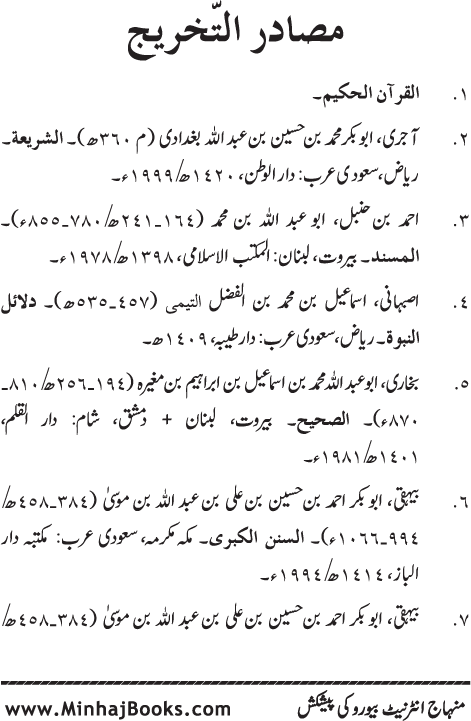 مصادر التّخریج
۱. القرآن الحکیم۔
۲. آجری، ابو بکر محمد بن حسین بن عبد اللہ بغدادی (م ۳۶۰ھ)۔ الشریعة۔
ریاض، سعودی عرب: دار الوطن، ۱۴۲۰ھ/۱۹۹۹ء۔
۳. احمد بن حنبل، ابو عبد اللہ بن محمد (۱۶۴۔۲۴۱ھ/۷۸۰۔۸۵۵ء)۔
المسند۔ بیروت، لبنان: المکتب الاسلامی، ۱۳۹۸ھ/۱۹۷۸ء۔
۴. اصبہانی، اسماعیل بن محمد بن الفضل التیمی (۴۵۷۔۵۳۵ھ)۔ دلائل
النبوة۔ ریاض، سعودی عرب: دار طیبہ، ۱۴۰۹ھ۔
۵. بخاری، ابو عبد اللہ محمد بن اسماعیل بن ابراہیم بن مغیرہ (۱۹۴۔۲۵۶ھ/۸۱۰۔
۸۷۰ء)۔ الصحیح۔ بیروت، لبنان + دمشق، شام: دار القلم،
۱۴۰۱ھ/۱۹۸۱ء۔
۶. بیہقی، ابو بکر احمد بن حسین بن علی بن عبد اللہ بن موسیٰ (۳۸۴۔۴۵۸ھ/
۹۹۴۔۱۰۶۶ء)۔ السنن الکبری۔ مکہ مکرمہ، سعودی عرب: مکتبہ دار
الباز، ۱۴۱۴ھ/۱۹۹۴ء۔
۷. بیہقی، ابو بکر احمد بن حسین بن علی بن عبد اللہ بن موسیٰ (۳۸۴۔۴۵۸ھ/
منہاج انٹرنیٹ بیورو کی پیشکش www.MinhajBooks.com